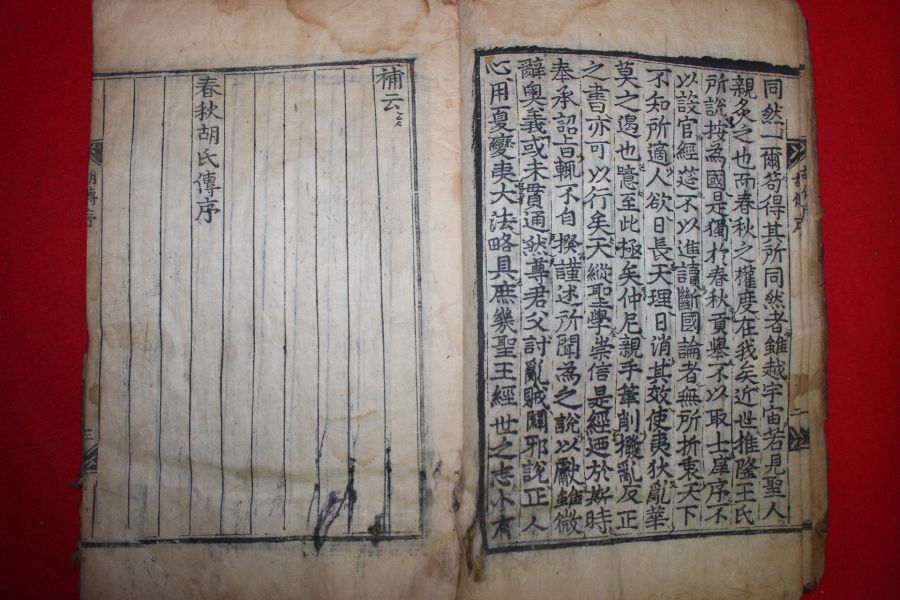 同然一爾苟得其所同然者雖越宇宙若見聖人
親炙之也而春秋之權度在我矣近世推隆王氏
所說按為國是獨於春秋貢擧不以取士庠序不
以設官經筵不以進讀斷國論者無所折衷天下
不知所適人欲日長天理日消其效使夷狄亂華
莫之遏也噫至此極矣仲尼親手筆削撥亂反正
之書亦可以行矣天縱聖學崇信是經迺於斯時
奉承詔旨輒不自揆謹述所聞為之說以獻雖微
辭奧義或未貫通然尊君父討亂賊闢邪說正人
心用夏變夷大法略具庶幾聖王經世之志小有
補云
春秋胡氏傳序
胡傳序
三